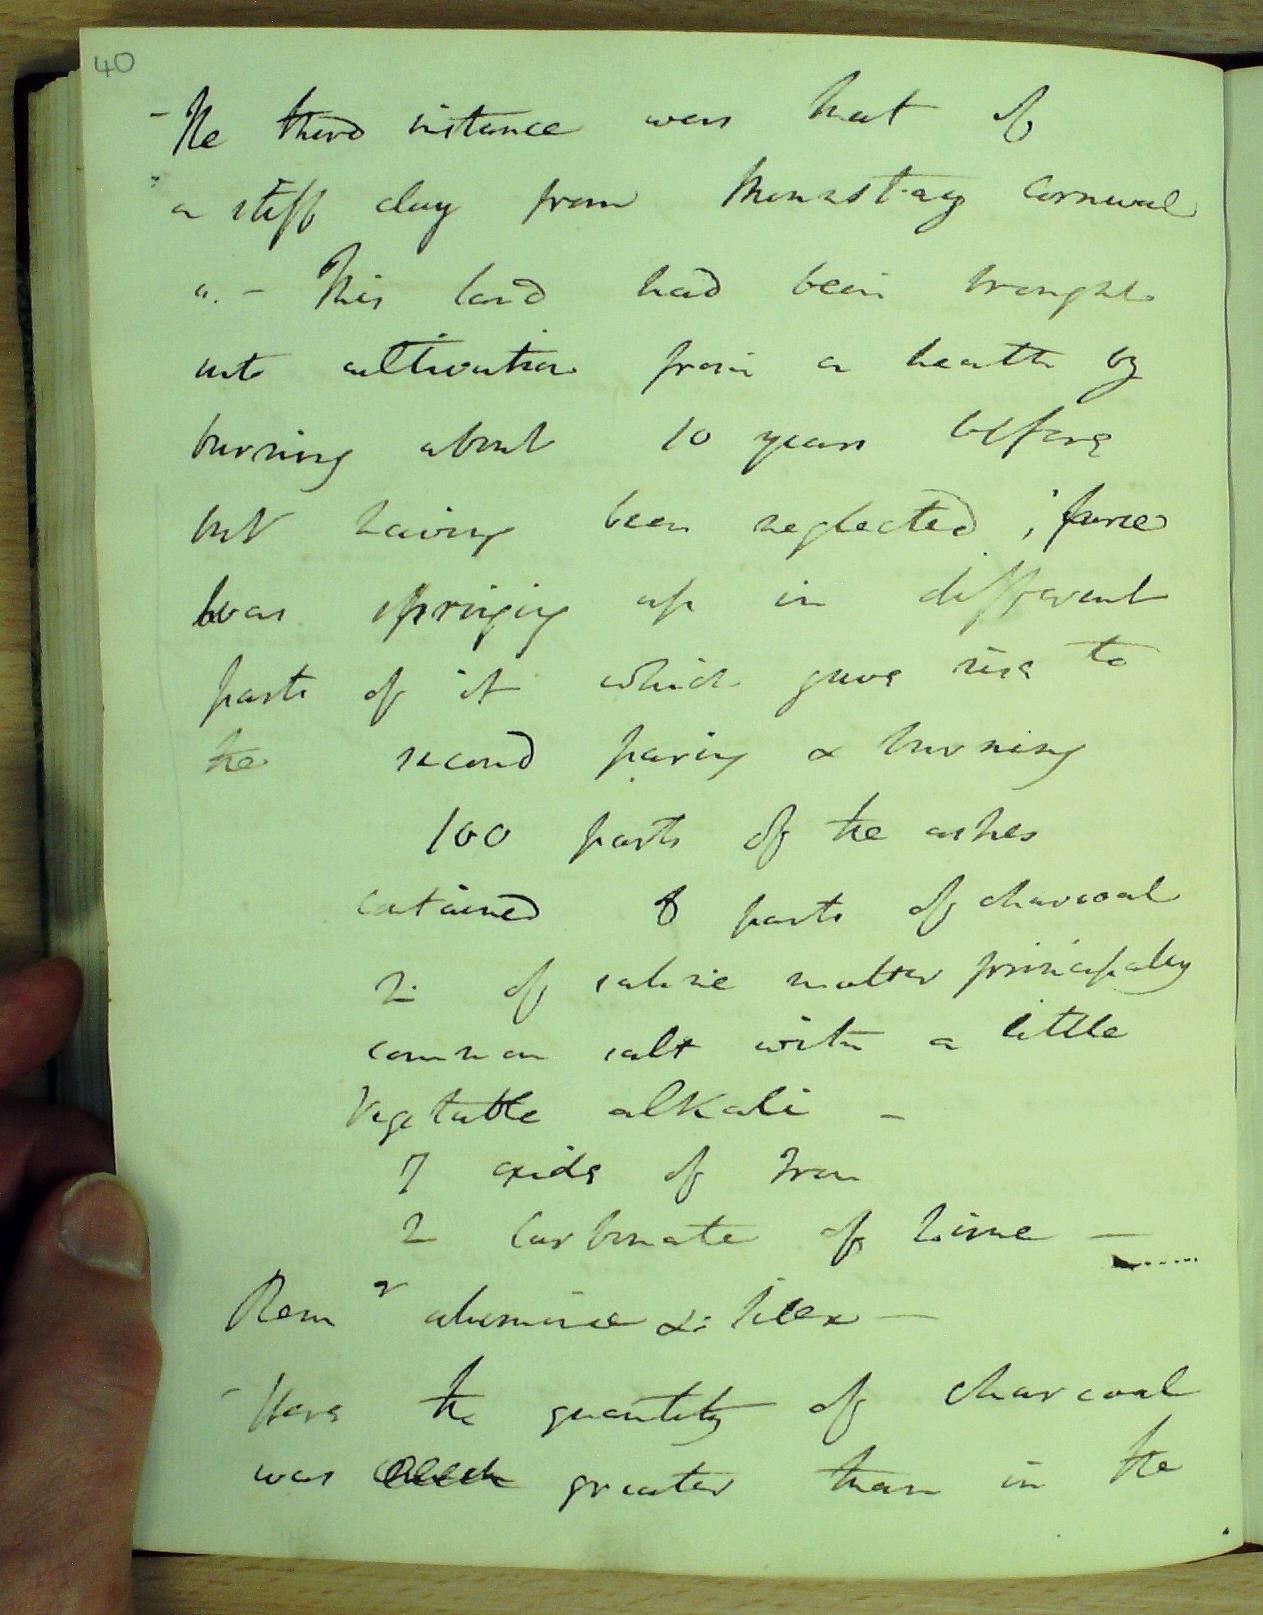 40
- The third instance was that of
a stiff clay from Cornwal
". - This land had been brought
into cultivation from a heath by
burning about 10 years before
but having been neglected ; furze
was springing up in different
parts of it which gave rise to
the second paring & burning
100 parts of the ashes
contained 8 parts of charcoal
2. of saline matter principally
common salt with a little
Vegetable alkali -
7 oxide of Iron
2 Carbonate of Lime -
Rem r alumine & Silex -
- Here the quantity of charcoal
was greater than in the